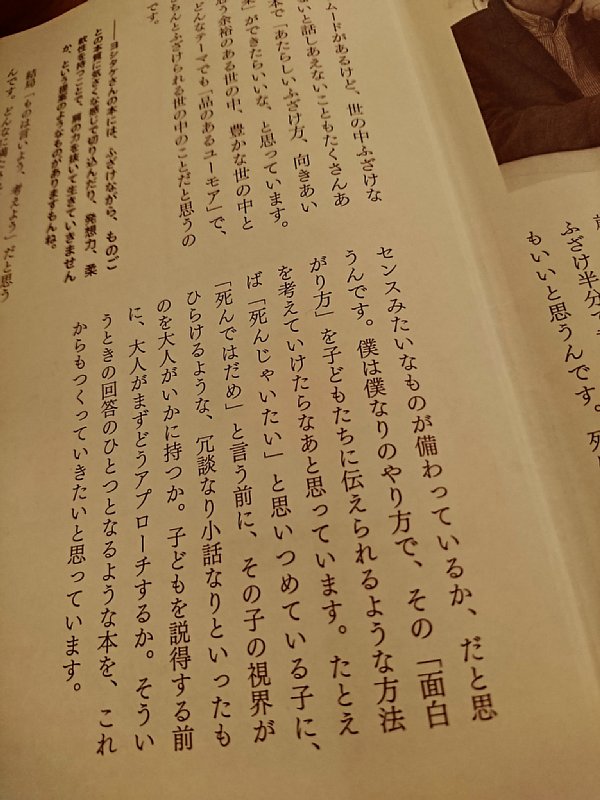 歳
ふざけ半分で
もいいと思うんです。死
ムードがあるけど、世の中ふざけな
いと話しあえないこともたくさんあ
本で「あたらしいふざけ方、向きあい
」ができたらいいな、と思っています。
う余裕のある世の中、豊かな世の中と
どんなテーマでも「品のあるユーモア」で、
ちんとふざけられる世の中のことだと思うの
です。
——ヨシタケさんの本には、ふざけながら、ものご
との本質に気さくな感じで切り込んだり、発想力、柔
軟性を持つことで、肩の力を抜いて生きていきません
か、という提案のようなものがありますもんね。
結局「ものは言いよう、考えよう」だと思う
んです。どんなに
センスみたいなものが備わっているか、だと思
うんです。僕は僕なりのやり方で、その「面白
がり方」を子どもたちに伝えられるような方法
を考えていけたらなあと思っています。たとえ
ば「死んじゃいたい」と思いつめている子に、
「死んではだめ」と言う前に、その子の視界が
ひらけるような、冗談なり小話なりといったも
のを大人がいかに持つか。子どもを説得する前
に、大人がまずどうアプローチするか。そうい
うときの回答のひとつとなるような本を、これ
からもつくっていきたいと思っています。